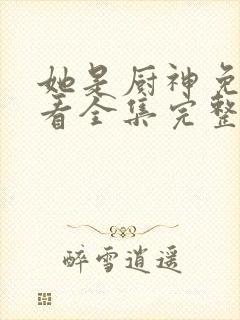 她是厨神免
看全集完整
醉雪逍遥